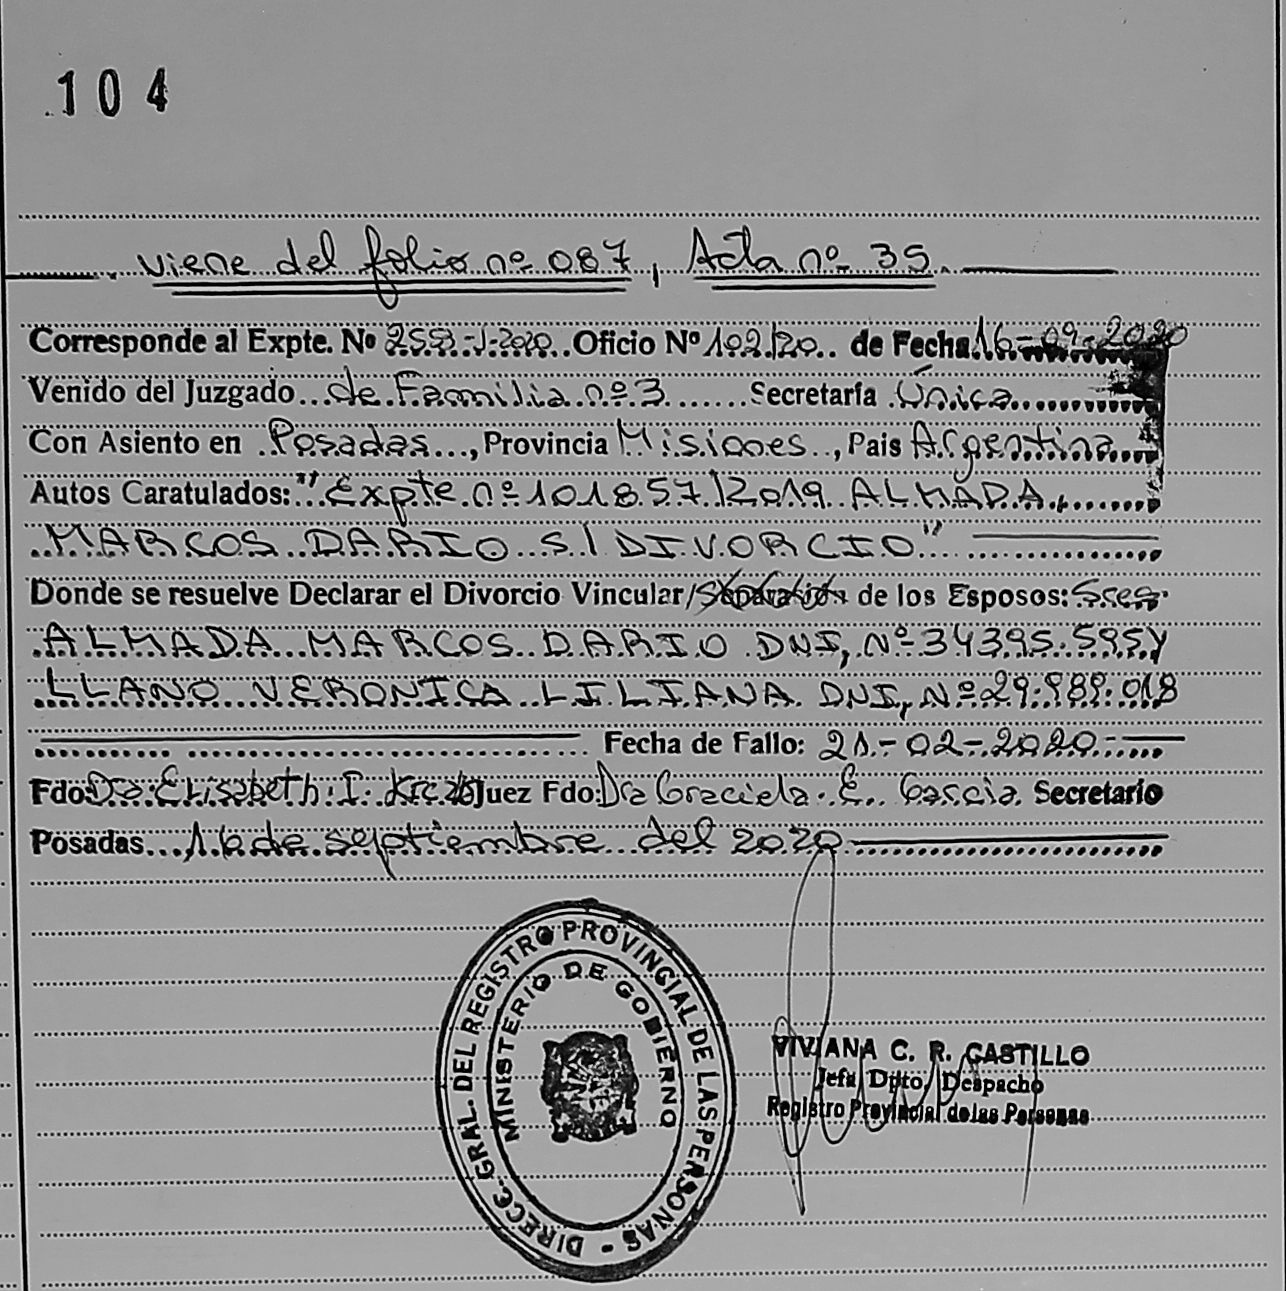 104
viene del folio nº 087, Acta nº 35.
Corresponde al Expte. Nº Oficio Nº 102/20 de Fecha 16-09-2020
Venido del Juzgado de Familia nº 3 Secretaría Única
Con Asiento en Posadas, Provincia Misiones, Pais Argentina
Autos Caratulados: "Expte nº 101857/2019 ALMADA,
MARCOS DARIO S/ DIVORCIO"
Donde se resuelve Declarar el Divorcio Vincular/Separación de los Esposos: Sres
ALMADA MARCOS DARIO DNI, Nº 34395.595 Y
LLANO VERONICA LILIANA DNI, Nº 29.989.018
Fecha de Fallo: 21-02-2020
Fdo: Dra Elisabeth I. Juez Fdo: Dra Graciela E. Garcia Secretario
Posadas 16 de septiembre del 2020
DIRECC. GRAL. DEL REGISTRO PROVINCIAL DE LAS PERSONAS -
MINISTERIO DE GOBIERNO
VIVIANA C. R. CASTILLO
Jefa Dpto. Despacho
Registro Provincial de las Personas